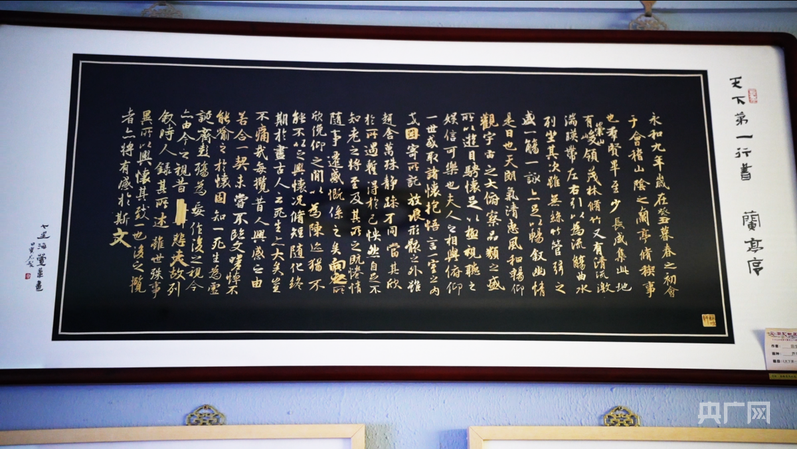 天下第一行書 蘭亭序
永和九年歲在癸丑暮春之初會
于會稽山陰之蘭亭脩稧事
也羣賢畢至少長咸集此地
有崇山峻領茂林脩竹又有清流激
湍暎帶左右引以為流觴曲水
列坐其次雖無絲竹管絃之
盛一觴一詠亦足以暢敘幽情
是日也天朗氣清惠風和暢仰
觀宇宙之大俯察品類之盛
所以遊目騁懷足以極視聽之
娛信可樂也夫人之相與俯仰
一世或取諸懷抱悟言一室之內
或因寄所託放浪形骸之外雖
趣舍萬殊靜躁不同當其欣
於所遇蹔得於己怏然自足不
知老之將至及其所之既惓情
隨事遷感慨係之矣向之所
欣俛仰之閒以為陳迹猶不
能不以之興懷況脩短隨化終
期於盡古人云死生亦大矣豈
不痛哉每攬昔人興感之由
若合一契未嘗不臨文嗟悼不
能喻之於懷固知一死生為虛
誕齊彭殤為妄作後之視今
亦由今之視昔悲夫故列
敘時人錄其所述雖世殊事
異所以興懷其致一也後之攬
者亦將有感於斯文
央广网